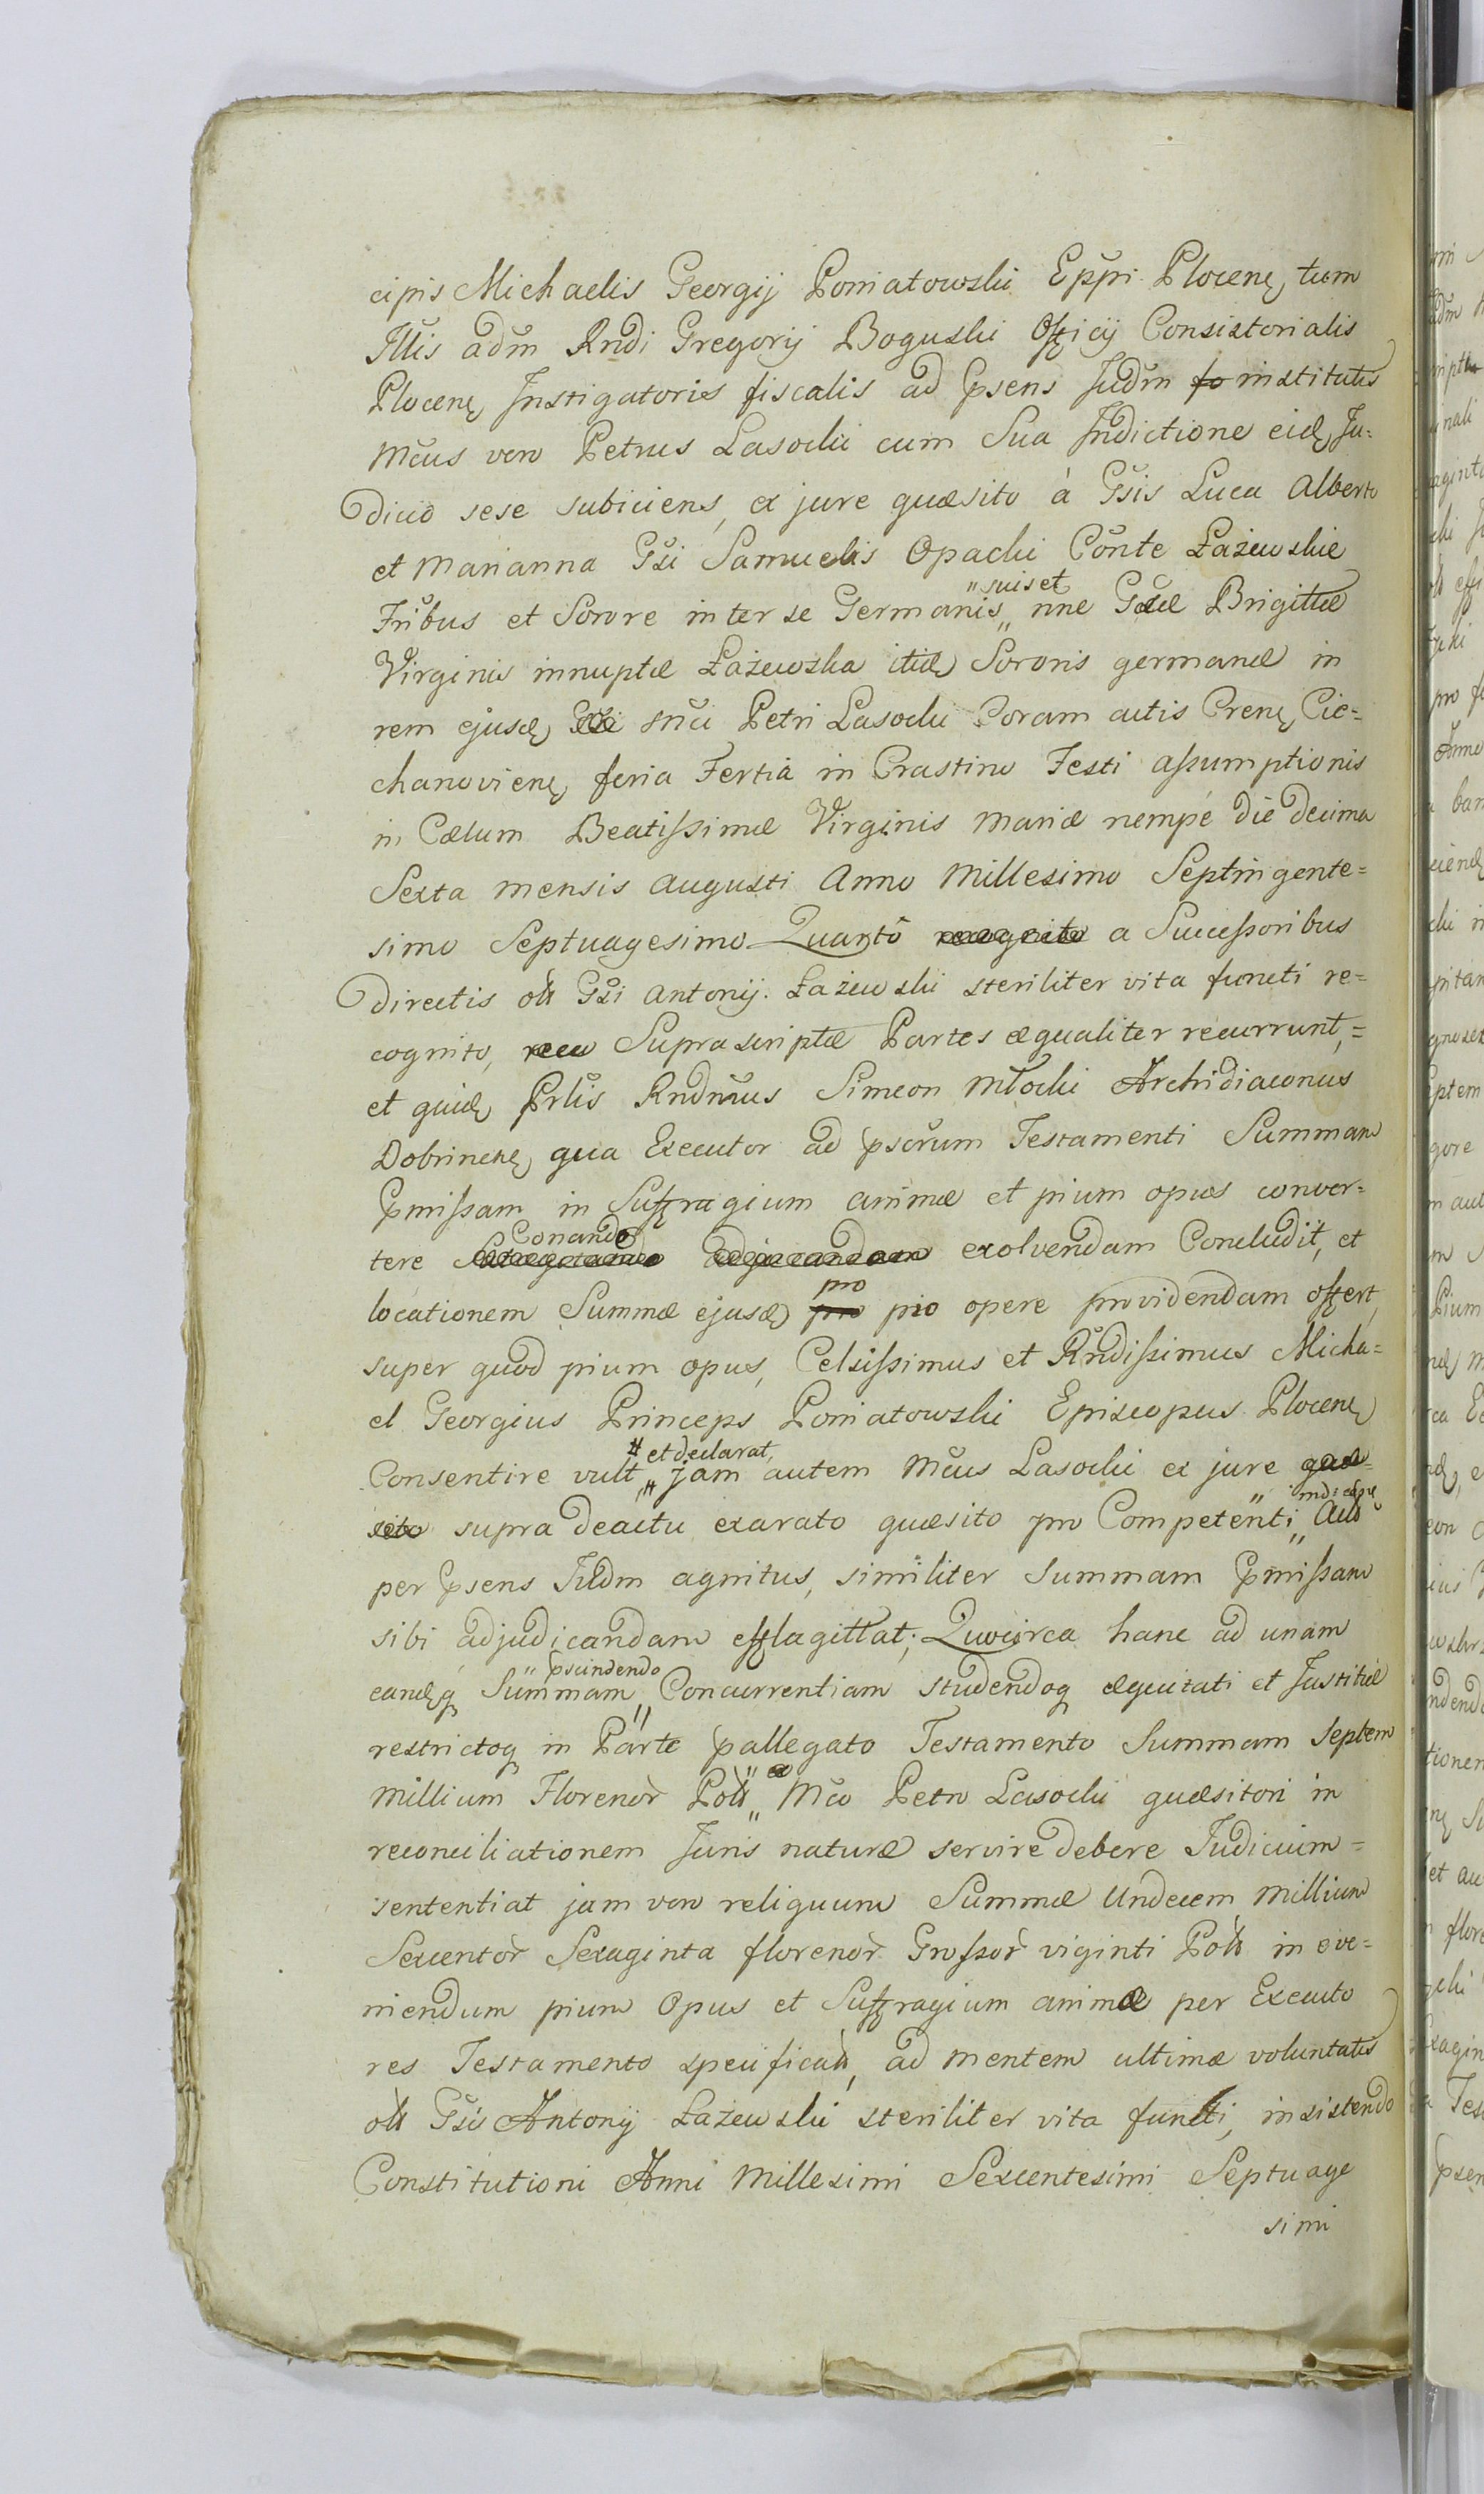 cipis Michaelis Georgij Poniatowski Eppi Plocenę, tum
Jllis adm Rndi Gregorij Boguski Officij Consistorialis
Plocenę Jnstigatoris fiscalis ad Psens Judm institutis
Mcus vero Petrus Lasocki cum Sua Jndictione eidę Ju=
dicio sese subiiciens, ex jure quæsito á Gsis Luca Alberto
et Marianna Gsi Samuelis Opacki Conte Łażewskie
Fribus et Sorore inter se Germanis „ nne Gsæ Brigittæ
"suis et
Virginis innuptæ Łażewska itidę Sororis germanæ in
rem ejusdę Petri Lasocki Coram actis Crenę Cie=
chanovienę feria Tertia in Crastino Festi assumptionis
in Cælum Beatissimæ Virginis Mariæ nempé die decima
Sexta mensis augusti Anno Millesimo Septingente=
simo Septuagesimo Quarto a Successoribus
directis oli Gsi Antonij Łażewski steriliter vita functi re=
cognito, Suprascriptæ Partes æqualiter recurrunt,=
et quidę Prlis Rndmus Simeon Młocki Archidiaconus
Dobrinenę qua Executor ad psorum Testamenti Summam
Pmissam in Suffragium animæ et pium opus conver=
tere Conando exolvendam Concludit, et
locationem Summæ ejusdę pro pio opere providendam offert,
super quod pium opus, Celsissimus et Rndissimus Micha=
el Georgius Princeps Poniatowski Episcopus Plocenę
Consentire vult „ jam autem Mcus Lasocki ex jure quæ=
# et declarat,
sito supra de actu exarato quæsito pro Competenti „ Actis
per Psens Judm agnitus, similiter Summam Pmissam
sibi adjudicandam efflagittat; Quocirca hanc ad unam
eandęq Summam „ Concurrentiam studendoq æquitati et Justitiæ
" pscindendo
restrictoq in Parte pallegato Testamento Summam Septem
Millium Florenor Poll „ Mco Petro Lasocki quæsitori in
reconciliationem Juris naturæ servire debere Judicium=
sententiat jam vero reliquum Summæ Undecem Millium
Sexcentor Sexaginta florenor Grossor viginti Poll in eve=
niendum pium Opus et Suffragium animæ per Executo
res Testamento specificatt, ad mentem ultimæ voluntatis
olj Gsis Antonij Łażewski steriliter vita functi, insistendo
Constitutioni Anni Millesimi Sexcentesimi Septuage
simi